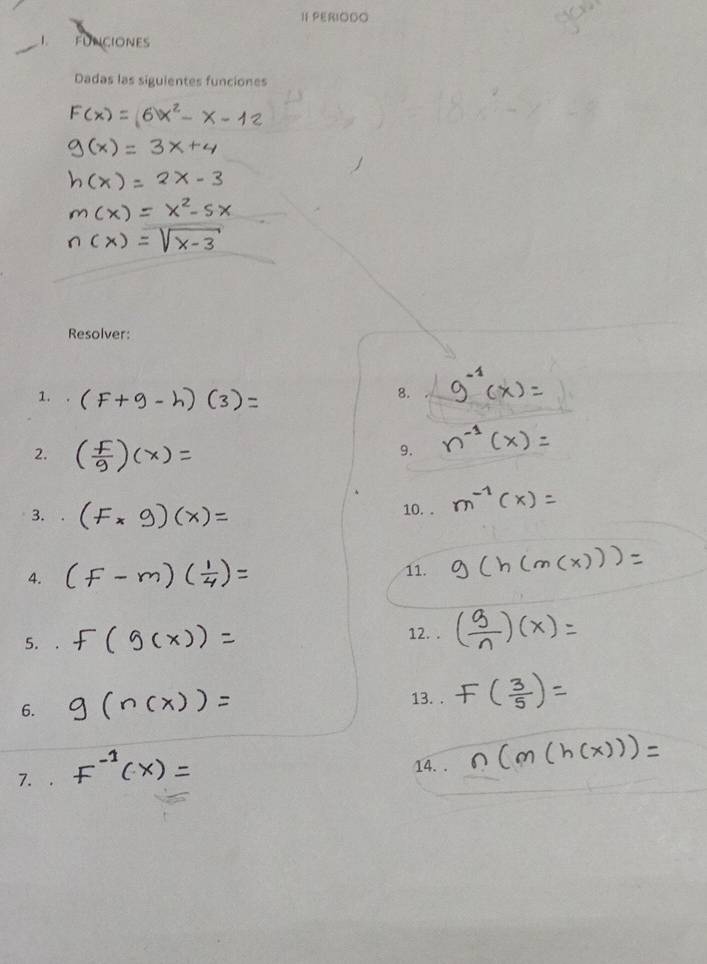 II PERIODO
I. FUNCIONES
Dadas las siguientes funciones
F(x) = 6x² - x - 12
g(x) = 3x + 4
h(x) = 2x - 3
m(x) = x² - 5x
n(x) = √(x-3)
Resolver:
1. . (F + g - h) (3) =
2. (F/g)(x) =
3. . (F × g)(x) =
4. (F - m)(1/4) =
5. . F(g(x)) =
6. g(n(x)) =
7. . F⁻¹(x) =
8. . g⁻¹(x) =
9. n⁻¹(x) =
10. . m⁻¹(x) =
11. g(h(m(x))) =
12. . (g/n)(x) =
13. . F(3/5) =
14. . n(m(h(x))) =